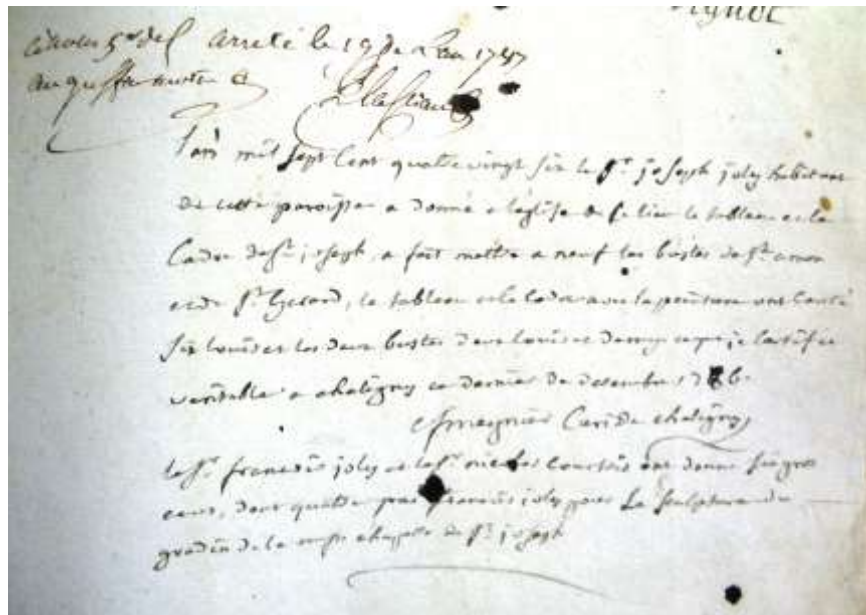 arreté le 19 de l'an 1747
l'an mil sept cent quatre vingt six le Sr joseph joly habitant
de cette paroisse a donné a l'église de ce lieu le tableau et le
Cadre de St joseph, a fait mettre a neuf les bustes de St amon
et de St Gerard, le tableau et le Cadre avec la peinture ont Couté
six louis et les deux bustes deux louis et demy ce que je Certifie
veritable a chaligny ce dernier de decembre 1786.
Curé de chaligny
le Sr françois joly et le Sr nicolas Courtois ont donné six gros
ecus, dont quatre par françois joly pour la sculpture du
gradin de la chappelle de St joseph